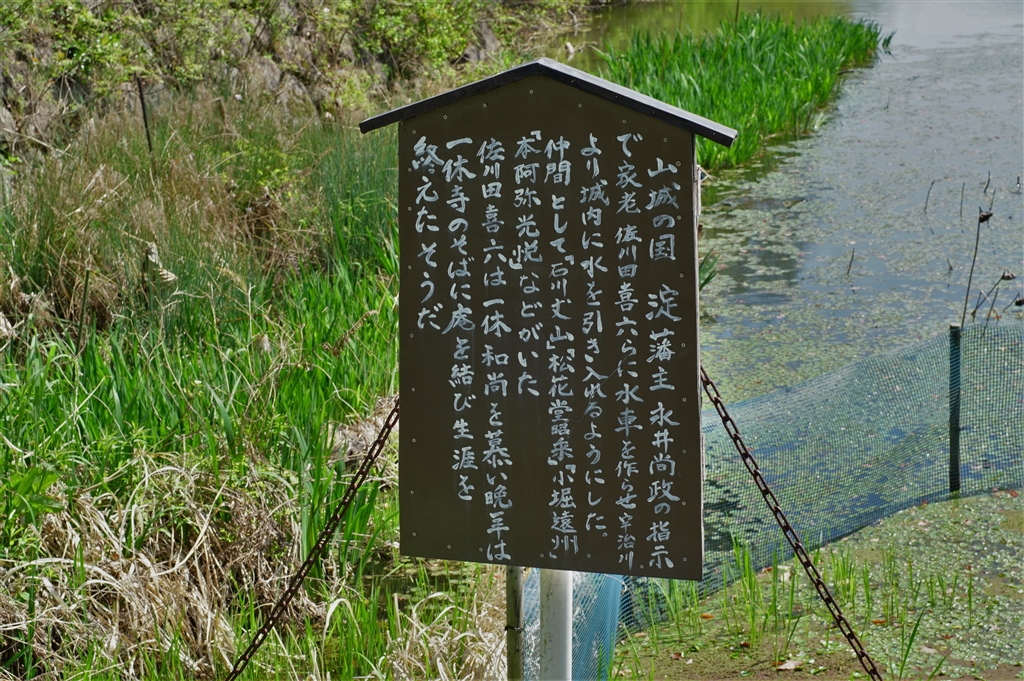 山城の国 淀藩主 永井尚政の指示
で家老 佐川田喜六らに水車を作らせ 宇治川
より城内に水を引き入れるようにした。
仲間として「石川丈山」「松花堂昭乗」「小堀遠州」
「本阿弥光悦」などがいた
佐川田喜六は一休和尚を慕い晩年は
一休寺のそばに庵を結び生涯を
終えたそうだ